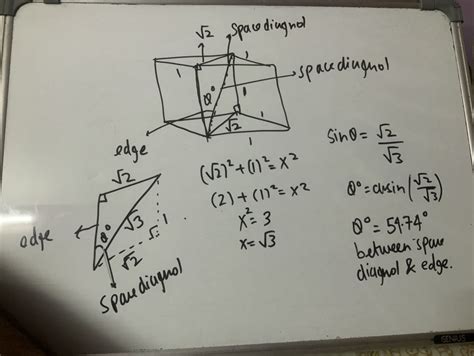 √2 space diagnol
1 1
→ space diagnol
θ° 1
1 √2 1
edge
√2
edge √3 1
θ°
√2
space diagnol
(√2)² + (1)² = x²
(2) + (1)² = x²
x² = 3
x = √3
Sinθ = √2/√3
θ° = arcsin(√2/√3)
θ° = 54.74°
between space
diagnol & edge.
GENIUS